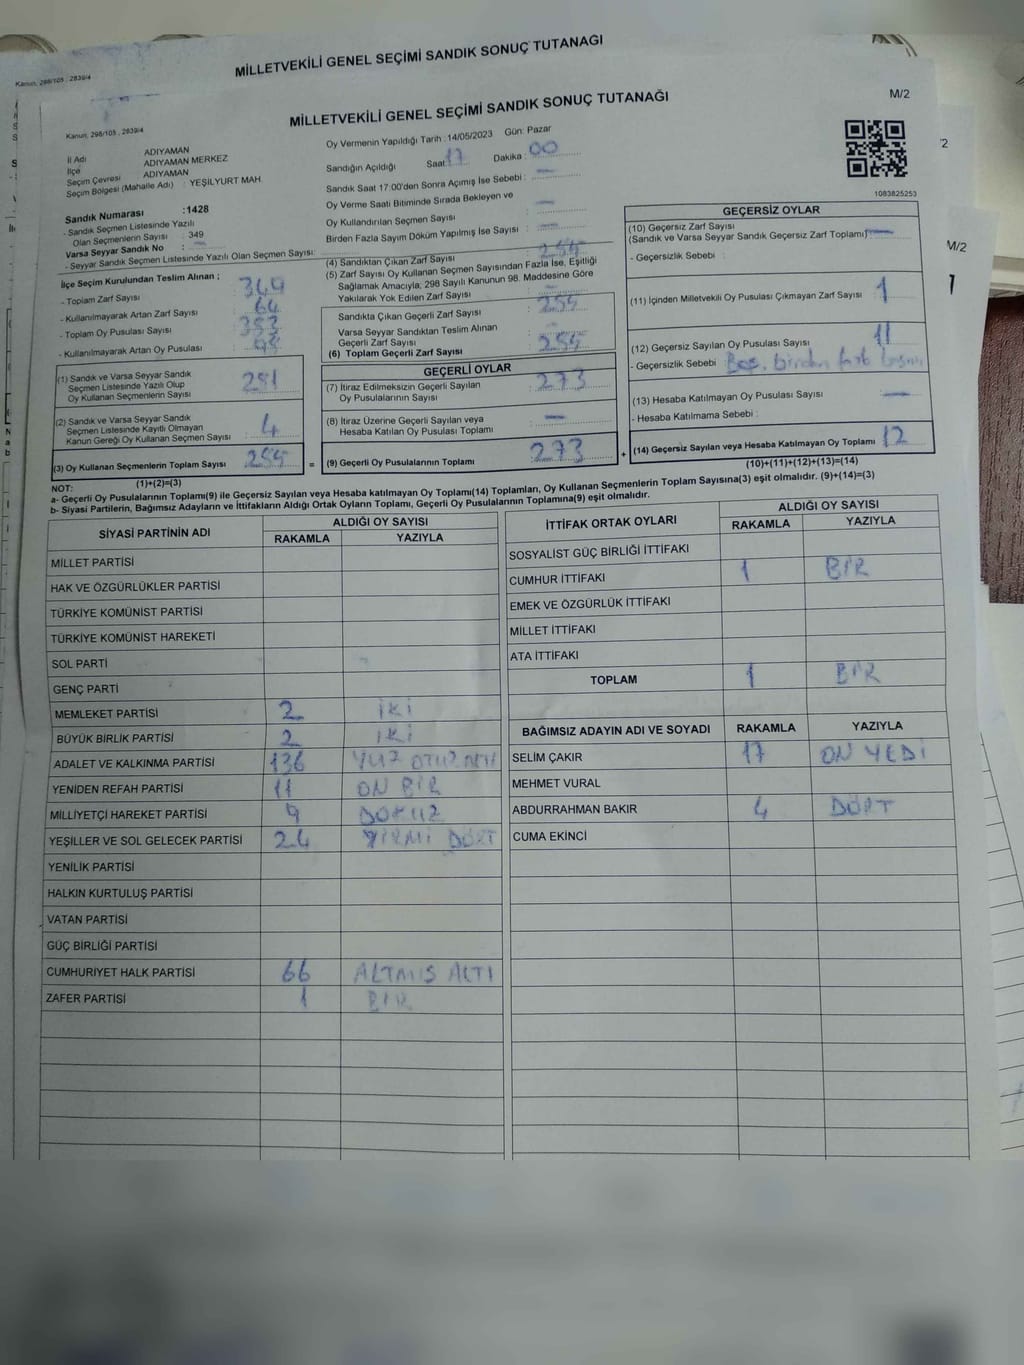 Kanun, 298/105 , 2839/4
MİLLETVEKİLİ GENEL SEÇİMİ SANDIK SONUÇ TUTANAĞI
MİLLETVEKİLİ GENEL SEÇİMİ SANDIK SONUÇ TUTANAĞI
M/2
Kanun, 298/105 , 2839/4
İl Adı ADIYAMAN
İlçe ADIYAMAN MERKEZ
Seçim Çevresi ADIYAMAN
Seçim Bölgesi (Mahalle Adı) : YEŞİLYURT MAH.
Sandık Numarası :1428
- Sandık Seçmen Listesinde Yazılı
Olan Seçmenlerin Sayısı : 349
Varsa Seyyar Sandık No : —
- Seyyar Sandık Seçmen Listesinde Yazılı Olan Seçmen Sayısı:
Oy Vermenin Yapıldığı Tarih : 14/05/2023 Gün: Pazar
Sandığın Açıldığı Saat: 17 Dakika : 00
Sandık Saat 17:00'den Sonra Açımış İse Sebebi : —
Oy Verme Saati Bitiminde Sırada Bekleyen ve
Oy Kullandırılan Seçmen Sayısı : —
Birden Fazla Sayım Döküm Yapılmış İse Sayısı : —
1083825253
İlçe Seçim Kurulundan Teslim Alınan ;
- Toplam Zarf Sayısı 349
- Kullanılmayarak Artan Zarf Sayısı 64
- Toplam Oy Pusulası Sayısı 353
- Kullanılmayarak Artan Oy Pusulası
(1) Sandık ve Varsa Seyyar Sandık
Seçmen Listesinde Yazılı Olup
Oy Kullanan Seçmenlerin Sayısı 281
(2) Sandık ve Varsa Seyyar Sandık
Seçmen Listesinde Kayıtlı Olmayan
Kanun Gereği Oy Kullanan Seçmen Sayısı 4
(3) Oy Kullanan Seçmenlerin Toplam Sayısı 285
(1)+(2)=(3)
(4) Sandıktan Çıkan Zarf Sayısı 285
(5) Zarf Sayısı Oy Kullanan Seçmen Sayısından Fazla İse, Eşitliği
Sağlamak Amacıyla; 298 Sayılı Kanunun 98. Maddesine Göre
Yakılarak Yok Edilen Zarf Sayısı : —
Sandıkta Çıkan Geçerli Zarf Sayısı : 285
Varsa Seyyar Sandıktan Teslim Alınan
Geçerli Zarf Sayısı
(6) Toplam Geçerli Zarf Sayısı : 285
GEÇERLİ OYLAR
(7) İtiraz Edilmeksizin Geçerli Sayılan
Oy Pusulalarının Sayısı : 273
(8) İtiraz Üzerine Geçerli Sayılan veya
Hesaba Katılan Oy Pusulası Toplamı : —
= (9) Geçerli Oy Pusulalarının Toplamı : 273 +
GEÇERSİZ OYLAR
(10) Geçersiz Zarf Sayısı
(Sandık ve Varsa Seyyar Sandık Geçersiz Zarf Toplamı) : —
- Geçersizlik Sebebi :
(11) İçinden Milletvekili Oy Pusulası Çıkmayan Zarf Sayısı : 1
(12) Geçersiz Sayılan Oy Pusulası Sayısı : 11
- Geçersizlik Sebebi : Boş, birden fazla
(13) Hesaba Katılmayan Oy Pusulası Sayısı : —
- Hesaba Katılmama Sebebi :
(14) Geçersiz Sayılan veya Hesaba Katılmayan Oy Toplamı 12
(10)+(11)+(12)+(13)=(14)
NOT:
a- Geçerli Oy Pusulalarının Toplamı(9) ile Geçersiz Sayılan veya Hesaba katılmayan Oy Toplamı(14) Toplamları, Oy Kullanan Seçmenlerin Toplam Sayısına(3) eşit olmalıdır. (9)+(14)=(3)
b- Siyasi Partilerin, Bağımsız Adayların ve İttifakların Aldığı Ortak Oyların Toplamı, Geçerli Oy Pusulalarının Toplamına(9) eşit olmalıdır.
SİYASİ PARTİNİN ADI ALDIĞI OY SAYISI
RAKAMLA YAZIYLA
MİLLET PARTİSİ
HAK VE ÖZGÜRLÜKLER PARTİSİ
TÜRKİYE KOMÜNİST PARTİSİ
TÜRKİYE KOMÜNİST HAREKETİ
SOL PARTİ
GENÇ PARTİ
MEMLEKET PARTİSİ 2 İKİ
BÜYÜK BİRLİK PARTİSİ 2 İKİ
ADALET VE KALKINMA PARTİSİ 136 YÜZ OTUZ ALTI
YENİDEN REFAH PARTİSİ 11 ON BİR
MİLLİYETÇİ HAREKET PARTİSİ 9 DOKUZ
YEŞİLLER VE SOL GELECEK PARTİSİ 24 YİRMİ DÖRT
YENİLİK PARTİSİ
HALKIN KURTULUŞ PARTİSİ
VATAN PARTİSİ
GÜÇ BİRLİĞİ PARTİSİ
CUMHURİYET HALK PARTİSİ 66 ALTMIŞ ALTI
ZAFER PARTİSİ 1 BİR
İTTİFAK ORTAK OYLARI ALDIĞI OY SAYISI
RAKAMLA YAZIYLA
SOSYALİST GÜÇ BİRLİĞİ İTTİFAKI
CUMHUR İTTİFAKI 1 BİR
EMEK VE ÖZGÜRLÜK İTTİFAKI
MİLLET İTTİFAKI
ATA İTTİFAKI
TOPLAM 1 BİR
BAĞIMSIZ ADAYIN ADI VE SOYADI RAKAMLA YAZIYLA
SELİM ÇAKIR 17 ON YEDİ
MEHMET VURAL
ABDURRAHMAN BAKIR 4 DÖRT
CUMA EKİNCİ
M/2